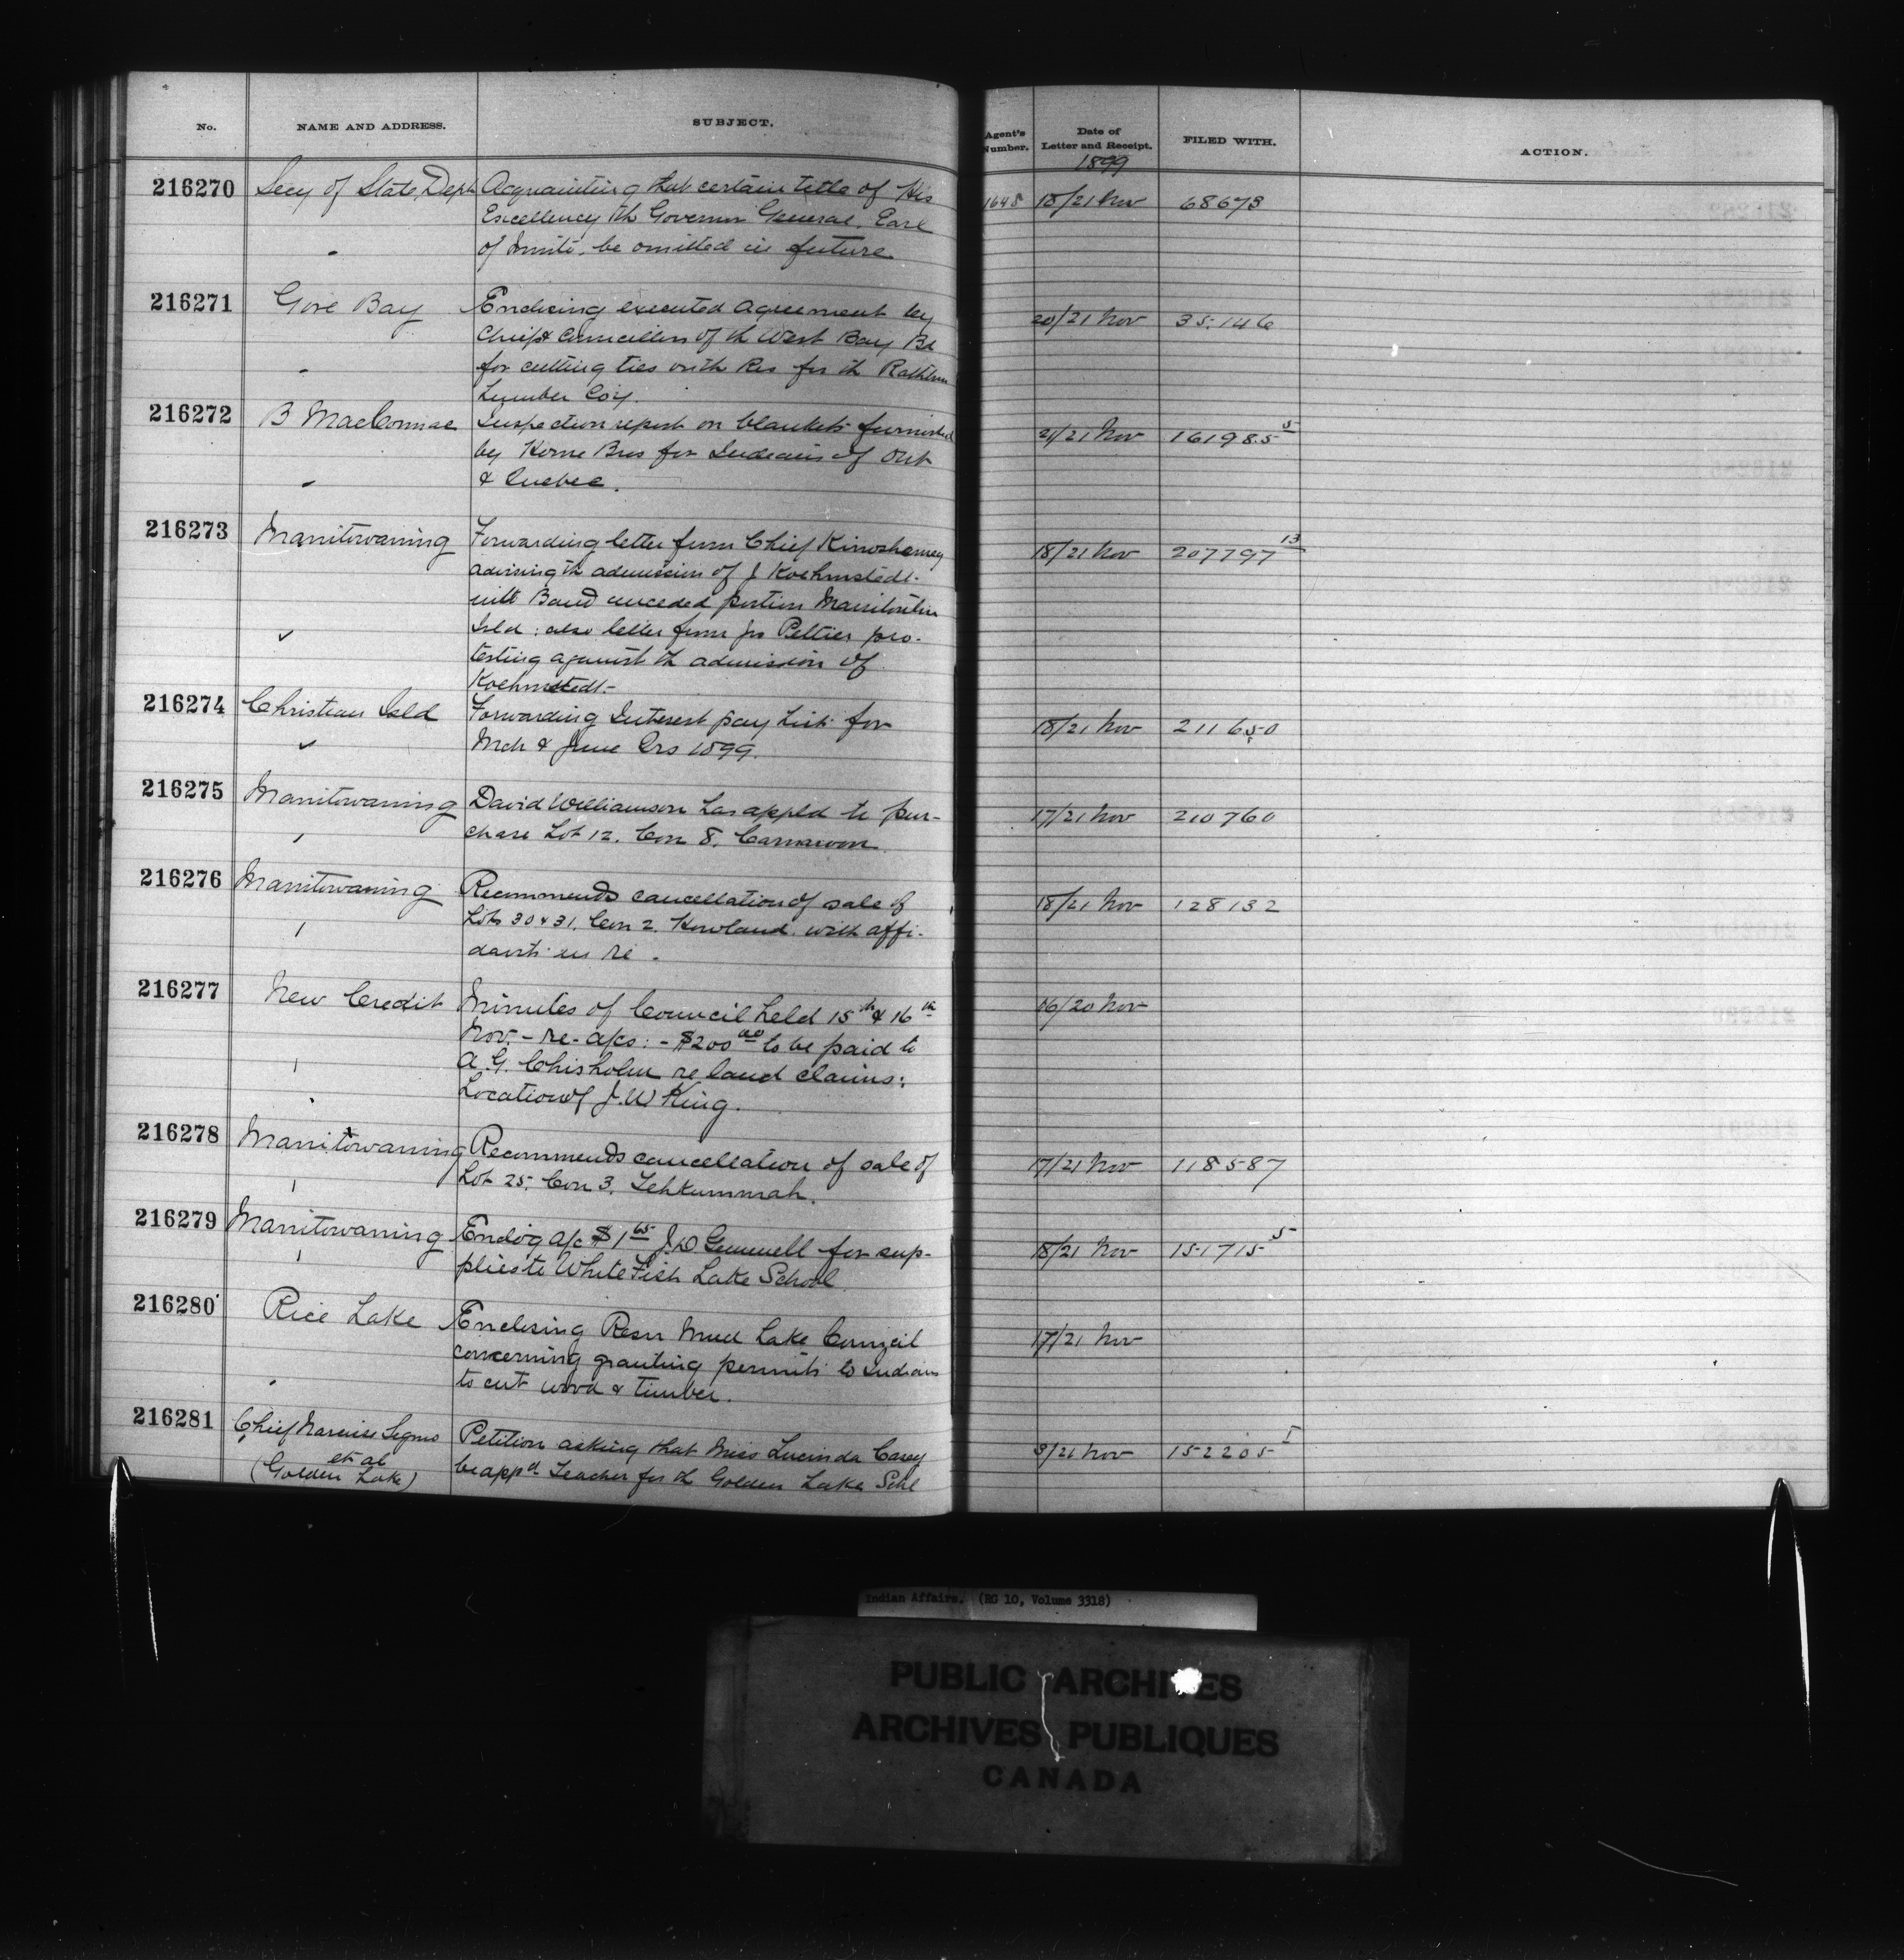 No. NAME AND ADDRESS. SUBJECT. Agent's Number. Date of Letter and Receipt. FILED WITH. ACTION.
1899
216270 Secy of State Dept Acquainting that certain title of His 1648 18/21 Nov 68673
Excellency th Governor General, Earl
of Minto, be omitted in future.
216271 Gore Bay Enclosing executed agreement by 20/21 Nov 35,146
Chief & Councillors of th West Bay Bd
for cutting ties on th Res for th Rathbun
Lumber Coy.
216272 B MacCormac Inspection report on blankets furnished 21/21 Nov 161985 5
by Horne Bros for Indians of Ont
& Quebec.
216273 Manitowaning Forwarding letter from Chief Kinoshameg 18/21 Nov 207797 13
advising th admission of J Koehmstedt
into Band unceded portion Manitoulin
Isld: also letter from Jos Peltier pro-
testing against th admission of
Koehmstedt-
216274 Christian Isld Forwarding Interest pay List for 18/21 Nov 211650
Mch & June Qrs 1899.
216275 Manitowaning David Williamson has appld to pur- 17/21 Nov 210760
chase Lot 12. Con 8. Carnarvon
216276 Manitowaning Recommends cancellation of sale of 18/21 Nov 128132
Lots 30 & 31, Con 2. Howland with affi-
davits in re.
216277 New Credit Minutes of Council held 15th & 16th 16/20 Nov
Nov. - re - a/cs: - $200 00 to be paid to
A. G. Chisholm re land claims:
Location of J. W King.
216278 Manitowaning Recommends cancellation of sale of 17/21 Nov 118587
Lot 25, Con 3, Tehkummah.
216279 Manitowaning Enclo'g a/c $1 65 J. D Gemmell for sup- 18/21 Nov 151715 5
plies to White Fish Lake School
216280 Rice Lake Enclosing Resn Mud Lake Council 17/21 Nov
concerning granting permits to Indians
to cut wood & timber.
216281 Chief Narcisse et al Petition asking that Miss Lucinda Carey 3/21 Nov 152205 1
(Golden Lake) be appd Teacher for th Golden Lake Schl
Indian Affairs. (RG 10, Volume 3318)
PUBLIC ARCHIVES
ARCHIVES PUBLIQUES
CANADA